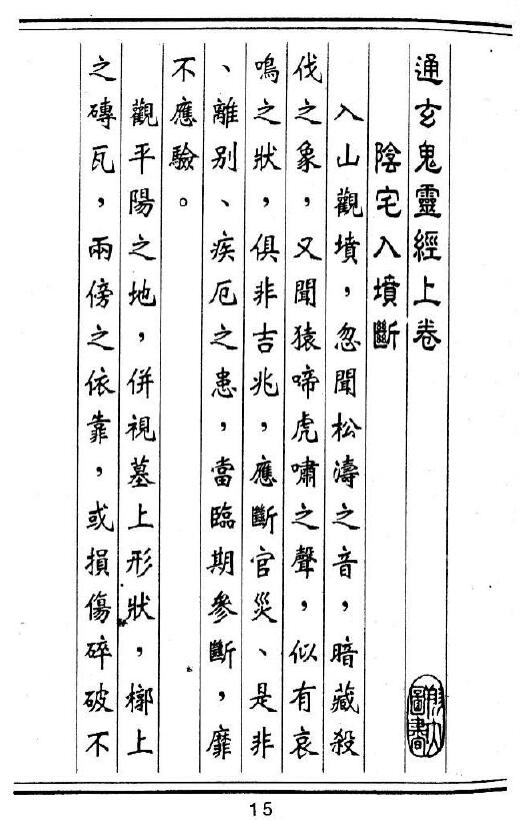 通玄鬼靈經上卷
陰宅入墳斷
入山觀墳，忽聞松濤之音，暗藏殺
伐之象，又聞猿啼虎嘯之聲，似有哀
鳴之狀，俱非吉兆，應斷官災、是非
、離别、疾厄之患，當臨期參斷，靡
不應驗。
觀平陽之地，併視墓上形狀，槨上
之磚瓦，兩傍之依靠，或損傷碎破不
圖書
15